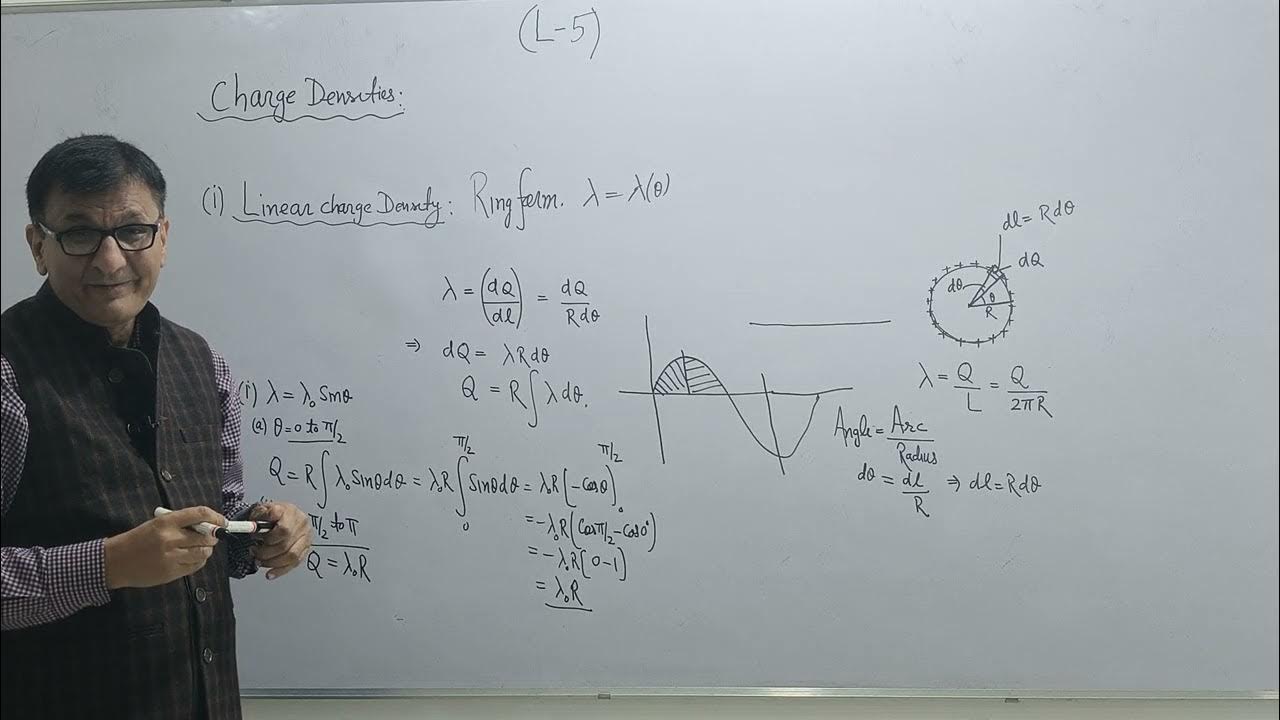 (L-5)
Charge Densities:
(i) Linear charge Density: Ring form. λ = λ(θ)
λ = (dQ/dl) = dQ/Rdθ
⇒ dQ = λRdθ
Q = R∫λdθ.
(i) λ = λ₀ Sinθ
(a) θ = 0 to π/2
Q = R∫λ₀Sinθdθ = λ₀R∫₀^π/2 Sinθdθ = λ₀R[-Cosθ]₀^π/2
= -λ₀R(Cosπ/2 - Cos0°)
= -λ₀R[0-1]
= λ₀R
π/2 to π
Q = λ₀R
dl = Rdθ
dQ
dθ
θ
R
λ = Q/L = Q/2πR
Angle = Arc/Radius
dθ = dl/R ⇒ dl = Rdθ